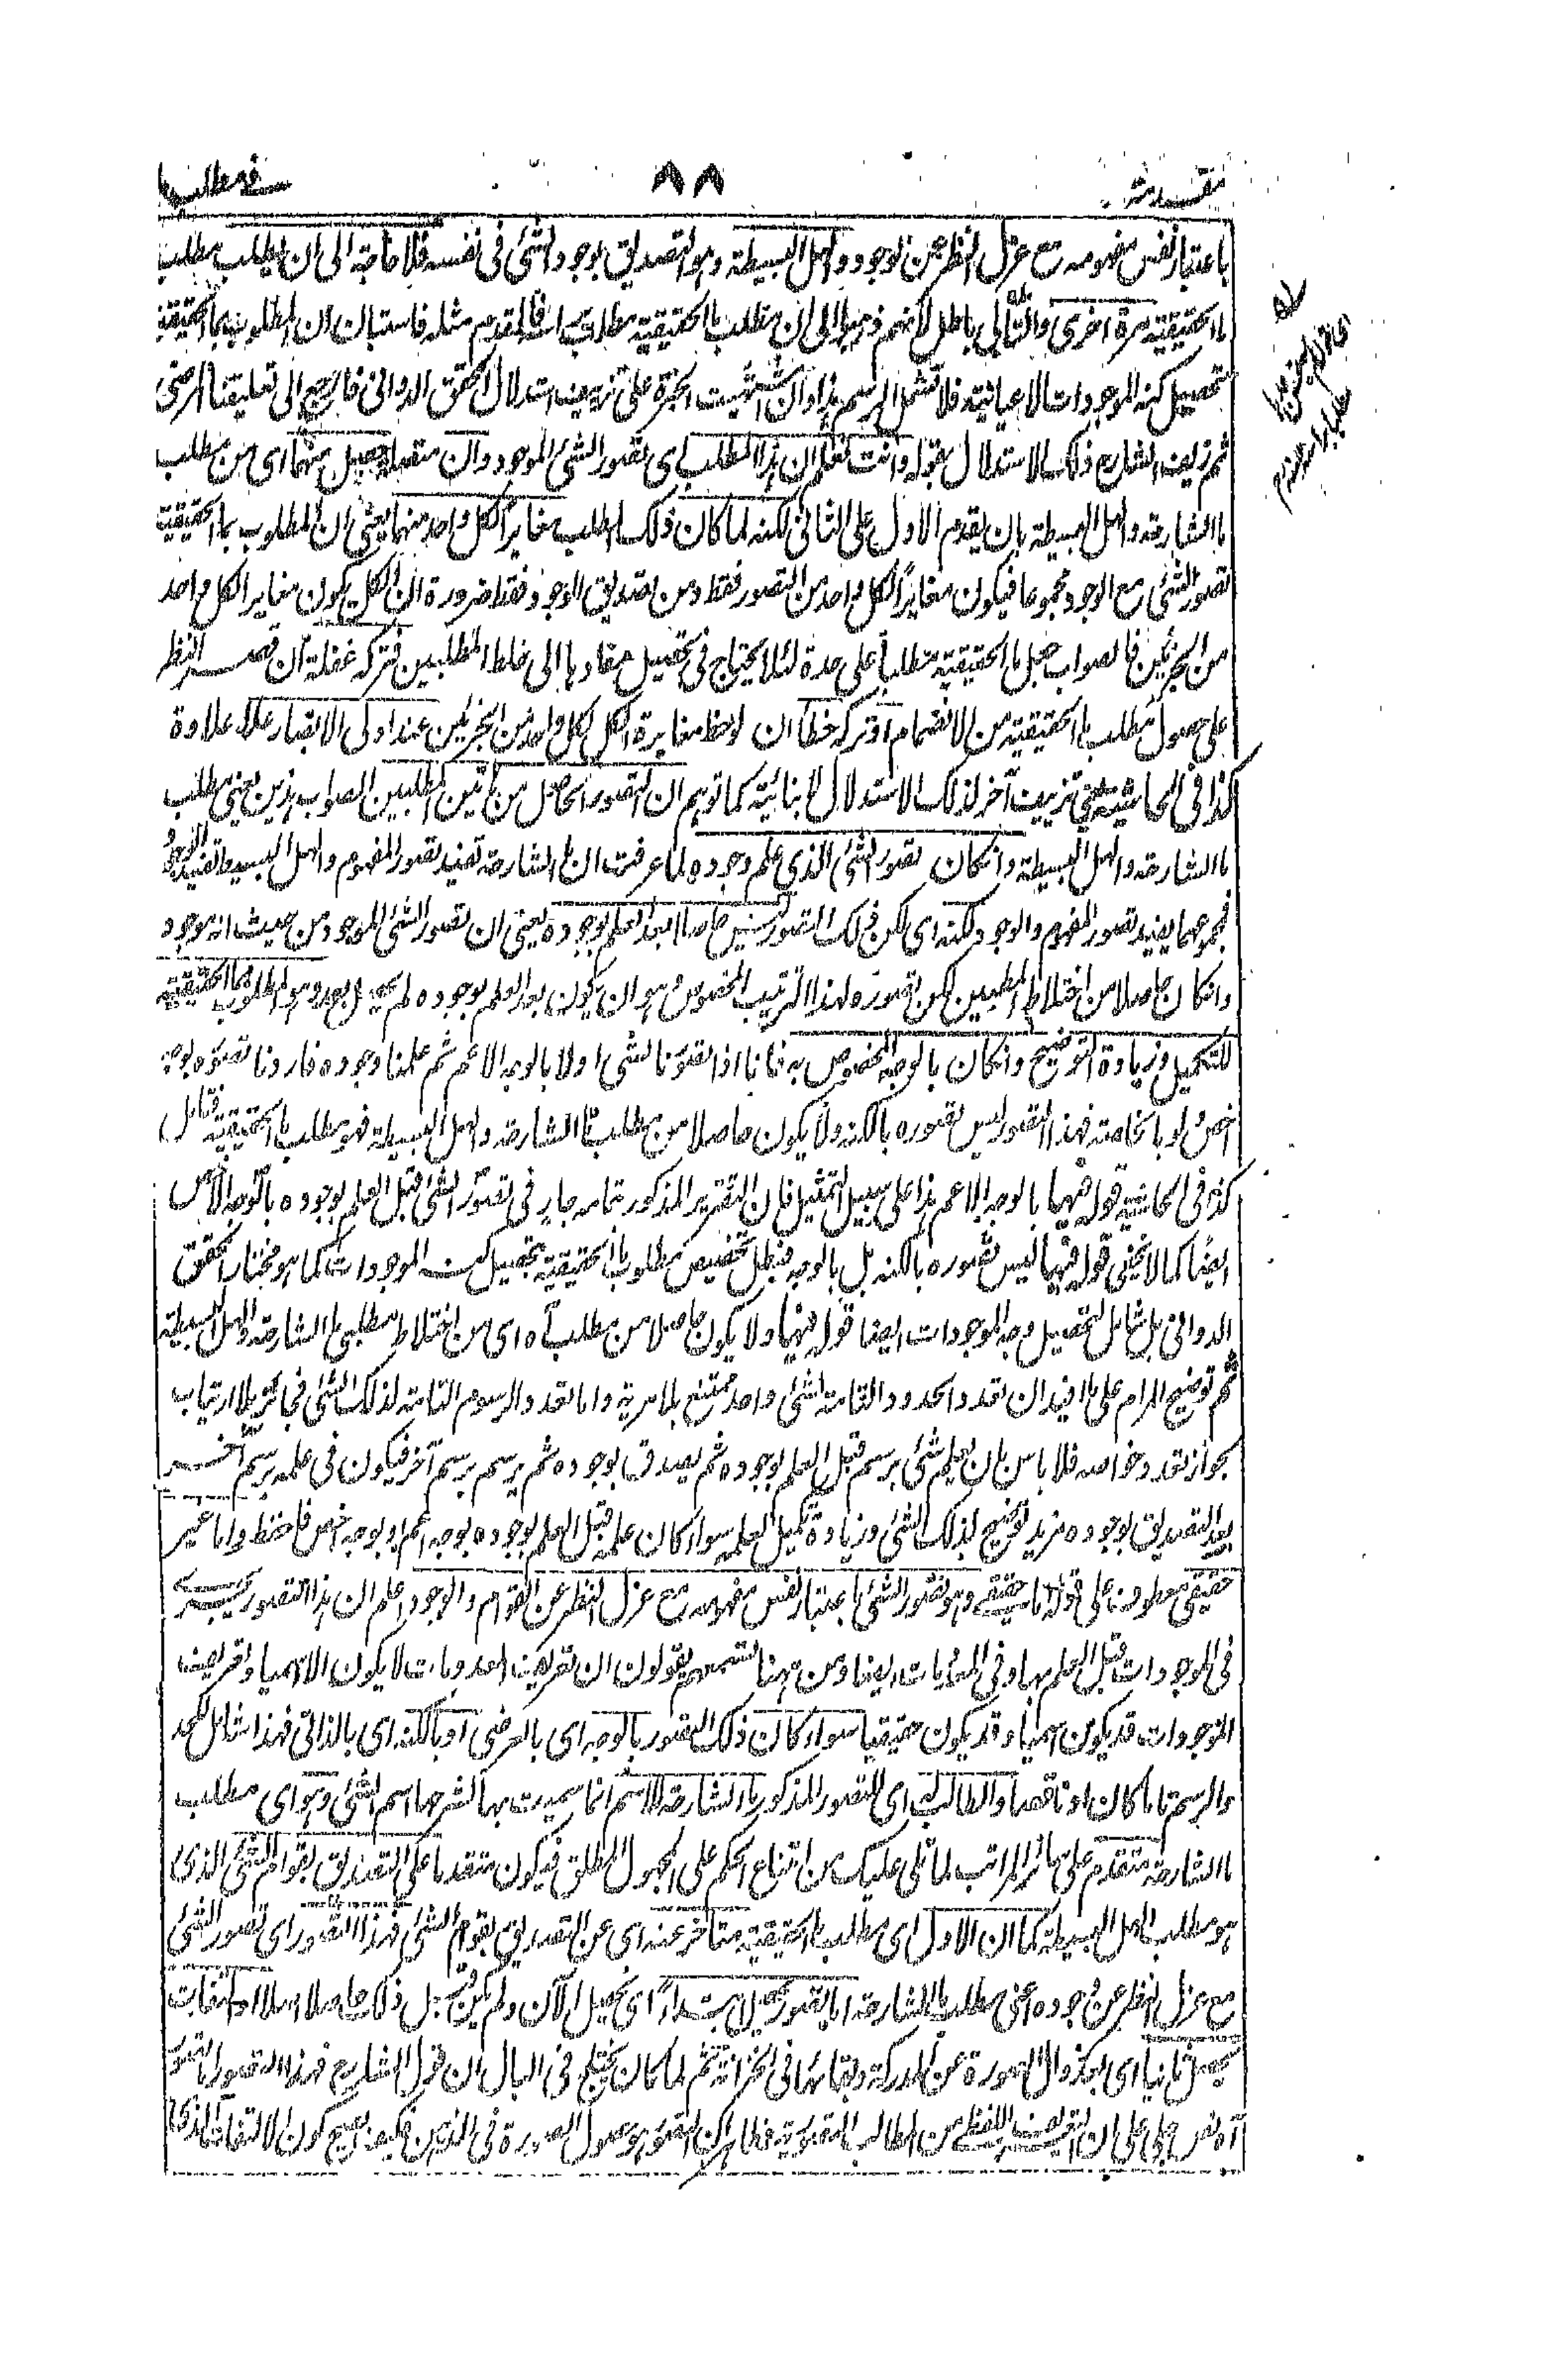 مقدمة ٨٨ فے مطلب ما
باعتبار نفس مفهومه مع عزل النظر عن الوجود والهل البسيطة وهو التصديق بوجود الشئ فى نفسه فلا حاجة الى ان يطلب مطلب
ما الحقيقية مرة اخرى والتالى باطل لانهم ذهبوا الى ان مطلب ما الحقيقية مطلب فالمقدم مثله فاستبان ان المطلوب بما الحقيقية
تحصيل كنه الموجودات الاعيانية فلا تشمل الرسم هذا وان اشتهيت الخبرة على تزييف استدلال المحقق الدوانى فارجع الى تعليقنا المرضى
ثم زيف الشارح ذلك الاستدلال بقوله وانت تعلم ان هذا المطلب اى تصور الشئ الموجود وان حصل منهما اى من مطلب
ما الشارحة والهل البسيطة بان يقدم الاول على الثانى لكنه لما كان ذلك المطلب مغايرا لكل واحد منهما يعنى ان المطلوب بما الحقيقية
تصور الشئ مع الوجود مجموعا فيكون مغايرا لكل واحد من التصور فقط ومن تصديق الوجود فقط ضرورة ان الكل يكون مغايرا لكل واحد
من الجزئين فالصواب جعل ما الحقيقية مطلبا على حدة لئلا يحتاج فى تحصيل مفادها الى خلط المطلبين فتركه غفلة ان قصر النظر
على حصول مطلب ما الحقيقية من الانضمام او تركه خطأ ان لوحظ مغايرة الكل لكل واحد من الجزئين عند اولى الابصار علاوة
كذا فى الحاشية تزييف آخر لذلك الاستدلال لا بنائية كما توهم ان التصور الحاصل من المطلبين الصواب هذين يعنى مطلب
ما الشارحة والهل البسيطة وانكان تصور الشئ الذى علم وجوده لما عرفت ان ما الشارحة تفيد تصور المفهوم والهل البسيطة تفيد الوجود
فمجموعهما يفيد تصور المفهوم والوجود لكنه اى لكن ذلك التصور ليس حاصلا بعد العلم بوجوده يعنى ان تصور الشئ الموجود من حيث انه موجود
وانكان حاصلا من اختلاط المطلبين لكن تصوره لهذا الترتيب المخصوص هو ان يكون بعد العلم بوجوده لم يحصل بعد وهو المطلوب بما الحقيقية
للتكميل وزيادة التوضيح وانكان بالوجه المخصوص به فانا اذا تصورنا الشئ اولا بالوجه الاعم ثم علمنا وجوده فاردنا تصوره بوجه
اخص ولو بالخاصة فهذا التصور ليس تصوره بالكنه ولا يكون حاصلا من مطلب ما الشارحة والهل البسيطة فهو مطلب ما الحقيقية فتامل
كذا فى الحاشية قوله فيها بالوجه الاعم هذا على سبيل التمثيل فان التقرير المذكور بتمامه جار فى تصور الشئ قبل العلم بوجوده بالوجه الاخص
ايضا كما لا يخفى قوله فيها ليس تصوره بالكنه بل بالوجه فبطل تخصيص مطلوب ما الحقيقية بتحصيل كنه الموجودات كما هو مختار المحقق
الدوانى بل شامل لتحصيل وجه الموجودات ايضا قوله فيها ولا يكون حاصلا من مطلب آه اى من اختلاط مطلبى ما الشارحة والهل البسيطة
ثم توضيح المرام على ما افيد ان تعدد الحدود التامة لشئ واحد ممتنع بلا مرية واما تعدد الرسوم التامة لذلك الشئ فجائز بلا ارتياب
بجواز تعدد خواصه فلا باس بان يعلم شئ برسم قبل العلم بوجوده ثم يصدق بوجوده ثم يرسم برسم آخر فيكون فى علمه برسم آخر
بعد التصديق بوجوده مزيد توضيح لذلك الشئ وزيادة تكميل العلم سواء كان علمه قبل العلم بوجوده بوجه اعم او بوجه اخص فاحفظ واما غير
حقيقى معطوف على قوله اما حقيقے وهو تصور الشئ باعتبار نفس مفهومه مع عزل النظر عن القوام والوجود اعلم ان هذا التصور يجرى
فى الموجودات قبل العلم بها وفى المعدومات ايضا ومن ههنا تسمعهم يقولون ان تعريف المعدومات لا يكون الا اسميا وتعريف
الموجودات قد يكون اسميا وقد يكون حقيقيا سواء كان ذلك التصور بالوجه اى بالعرضى او بالكنه اى بالذاتى فهذا شامل للحد
والرسم تاما كان او ناقصا والطالب له اى للتصور المذكور ما الشارحة للاسم انما سميت بها لشرحها اسم الشئ وهو اى مطلب
ما الشارحة متقدم على سائر المراتب لما تلى عليك من امتناع الحكم على المجهول المطلق فيكون متقدما على التصديق بقوام الشئ الذى
هو مطلب الهل البسيطة كما ان الاول اى مطلب ما الحقيقية متأخر عنه اى عن التصديق بقوام الشئ فهذا التصور اى تصور الشئ
مع عزل النظر عن وجوده اعنى مطلب ما الشارحة اما تصور يحصل ابتداءً اى يحصل الآن ولم يكن قبل ذلك حاصلا اصلا او التفات
يحصل ثانيا اى بعد زوال الصورة عن المدركة وبقائها فى الخزانة ثم لما كان يختلج فى البال ان قول الشارح فهذا التصور اما تصور
آه نص جلى على ان التعريف اللفظے من المطالب التصورية فظاهر لان التصور هو حصول الصورة فى الذهن فكيف يصح كون الالتفات الذى